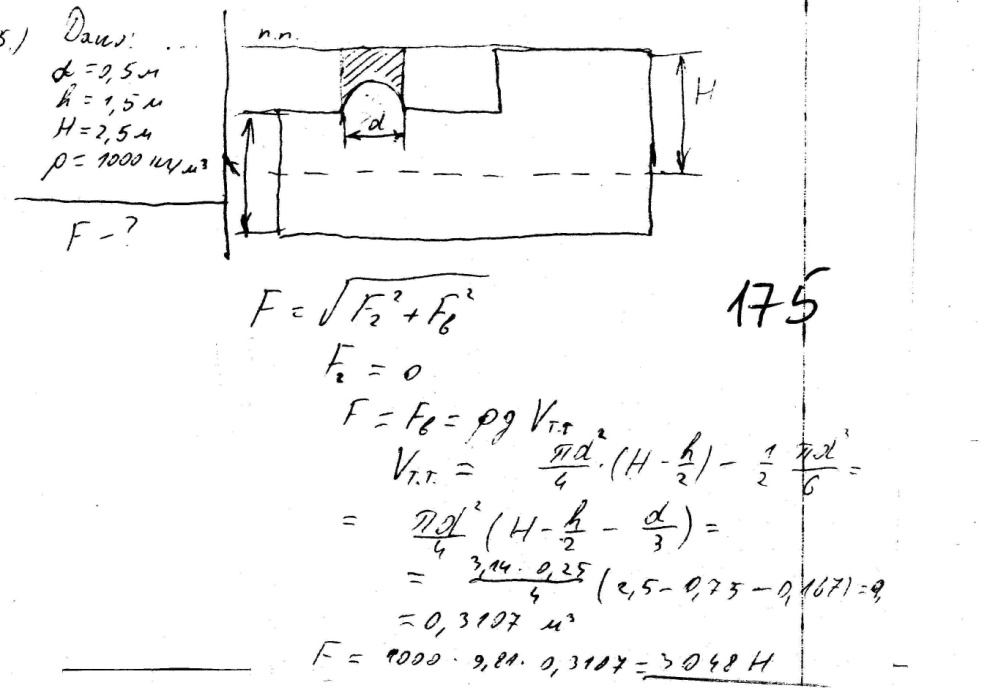 5.) Дано:
d = 0,5 м
h = 1,5 м
H = 2,5 м
ρ = 1000 кг/м³
F - ?
п.п.
H
d
F = √(F₂² + F_в²)
F₂ = 0
F = F_в = ρg V_т.т
V_т.т. = πd²/4 · (H - h/2) - 1/2 πd³/6 =
= πd²/4 (H - h/2 - d/3) =
= 3,14 · 0,25/4 (2,5 - 0,75 - 0,167) = 0,
= 0,3107 м³
F = 1000 · 9,81 · 0,3107 = 3048 Н
175